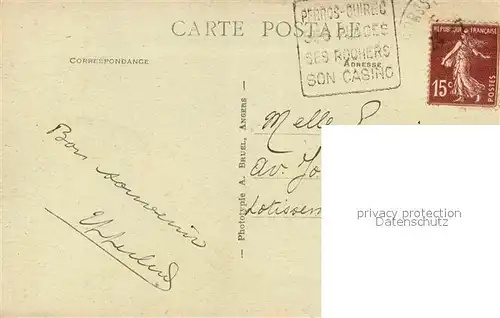 CARTE POSTALE
PERROS-GUIREC
SES PLAGES
SES ROCHERS
SON CASINO
CORRESPONDANCE
ADRESSE
REPUBLIQUE FRANÇAISE
15c
POSTES
Bon souvenir
— Phototypie A. Bruel, Angers —
Melle
Av.
Lotissem
privacy protection
Datenschutz